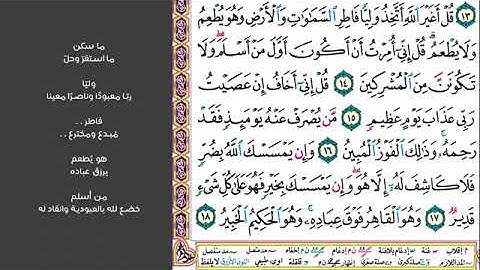 ١٣ قُلْ أَغَيْرَ ٱللَّهِ أَتَّخِذُ وَلِيًّا فَاطِرِ ٱلسَّمَٰوَٰتِ وَٱلْأَرْضِ وَهُوَ يُطْعِمُ
وَلَا يُطْعَمُ ۗ قُلْ إِنِّىٓ أُمِرْتُ أَنْ أَكُونَ أَوَّلَ مَنْ أَسْلَمَ ۖ وَلَا
تَكُونَنَّ مِنَ ٱلْمُشْرِكِينَ ١٤ قُلْ إِنِّىٓ أَخَافُ إِنْ عَصَيْتُ
رَبِّى عَذَابَ يَوْمٍ عَظِيمٍ ١٥ مَّن يُصْرَفْ عَنْهُ يَوْمَئِذٍ فَقَدْ
رَحِمَهُۥ ۚ وَذَٰلِكَ ٱلْفَوْزُ ٱلْمُبِينُ ١٦ وَإِن يَمْسَسْكَ ٱللَّهُ بِضُرٍّ
فَلَا كَاشِفَ لَهُۥٓ إِلَّا هُوَ ۖ وَإِن يَمْسَسْكَ بِخَيْرٍ فَهُوَ عَلَىٰ كُلِّ شَىْءٍ
قَدِيرٌ ١٧ وَهُوَ ٱلْقَاهِرُ فَوْقَ عِبَادِهِۦ ۚ وَهُوَ ٱلْحَكِيمُ ٱلْخَبِيرُ ١٨
ما سكن
ما استقرّ وحلّ
وليّا
ربّا معبودًا وناصرًا معينا
فاطر ..
مُبدع ومخترع ..
هو يُطعم
يرزق عباده
من أسلم
خضع لله بالعبودية وانقاد له